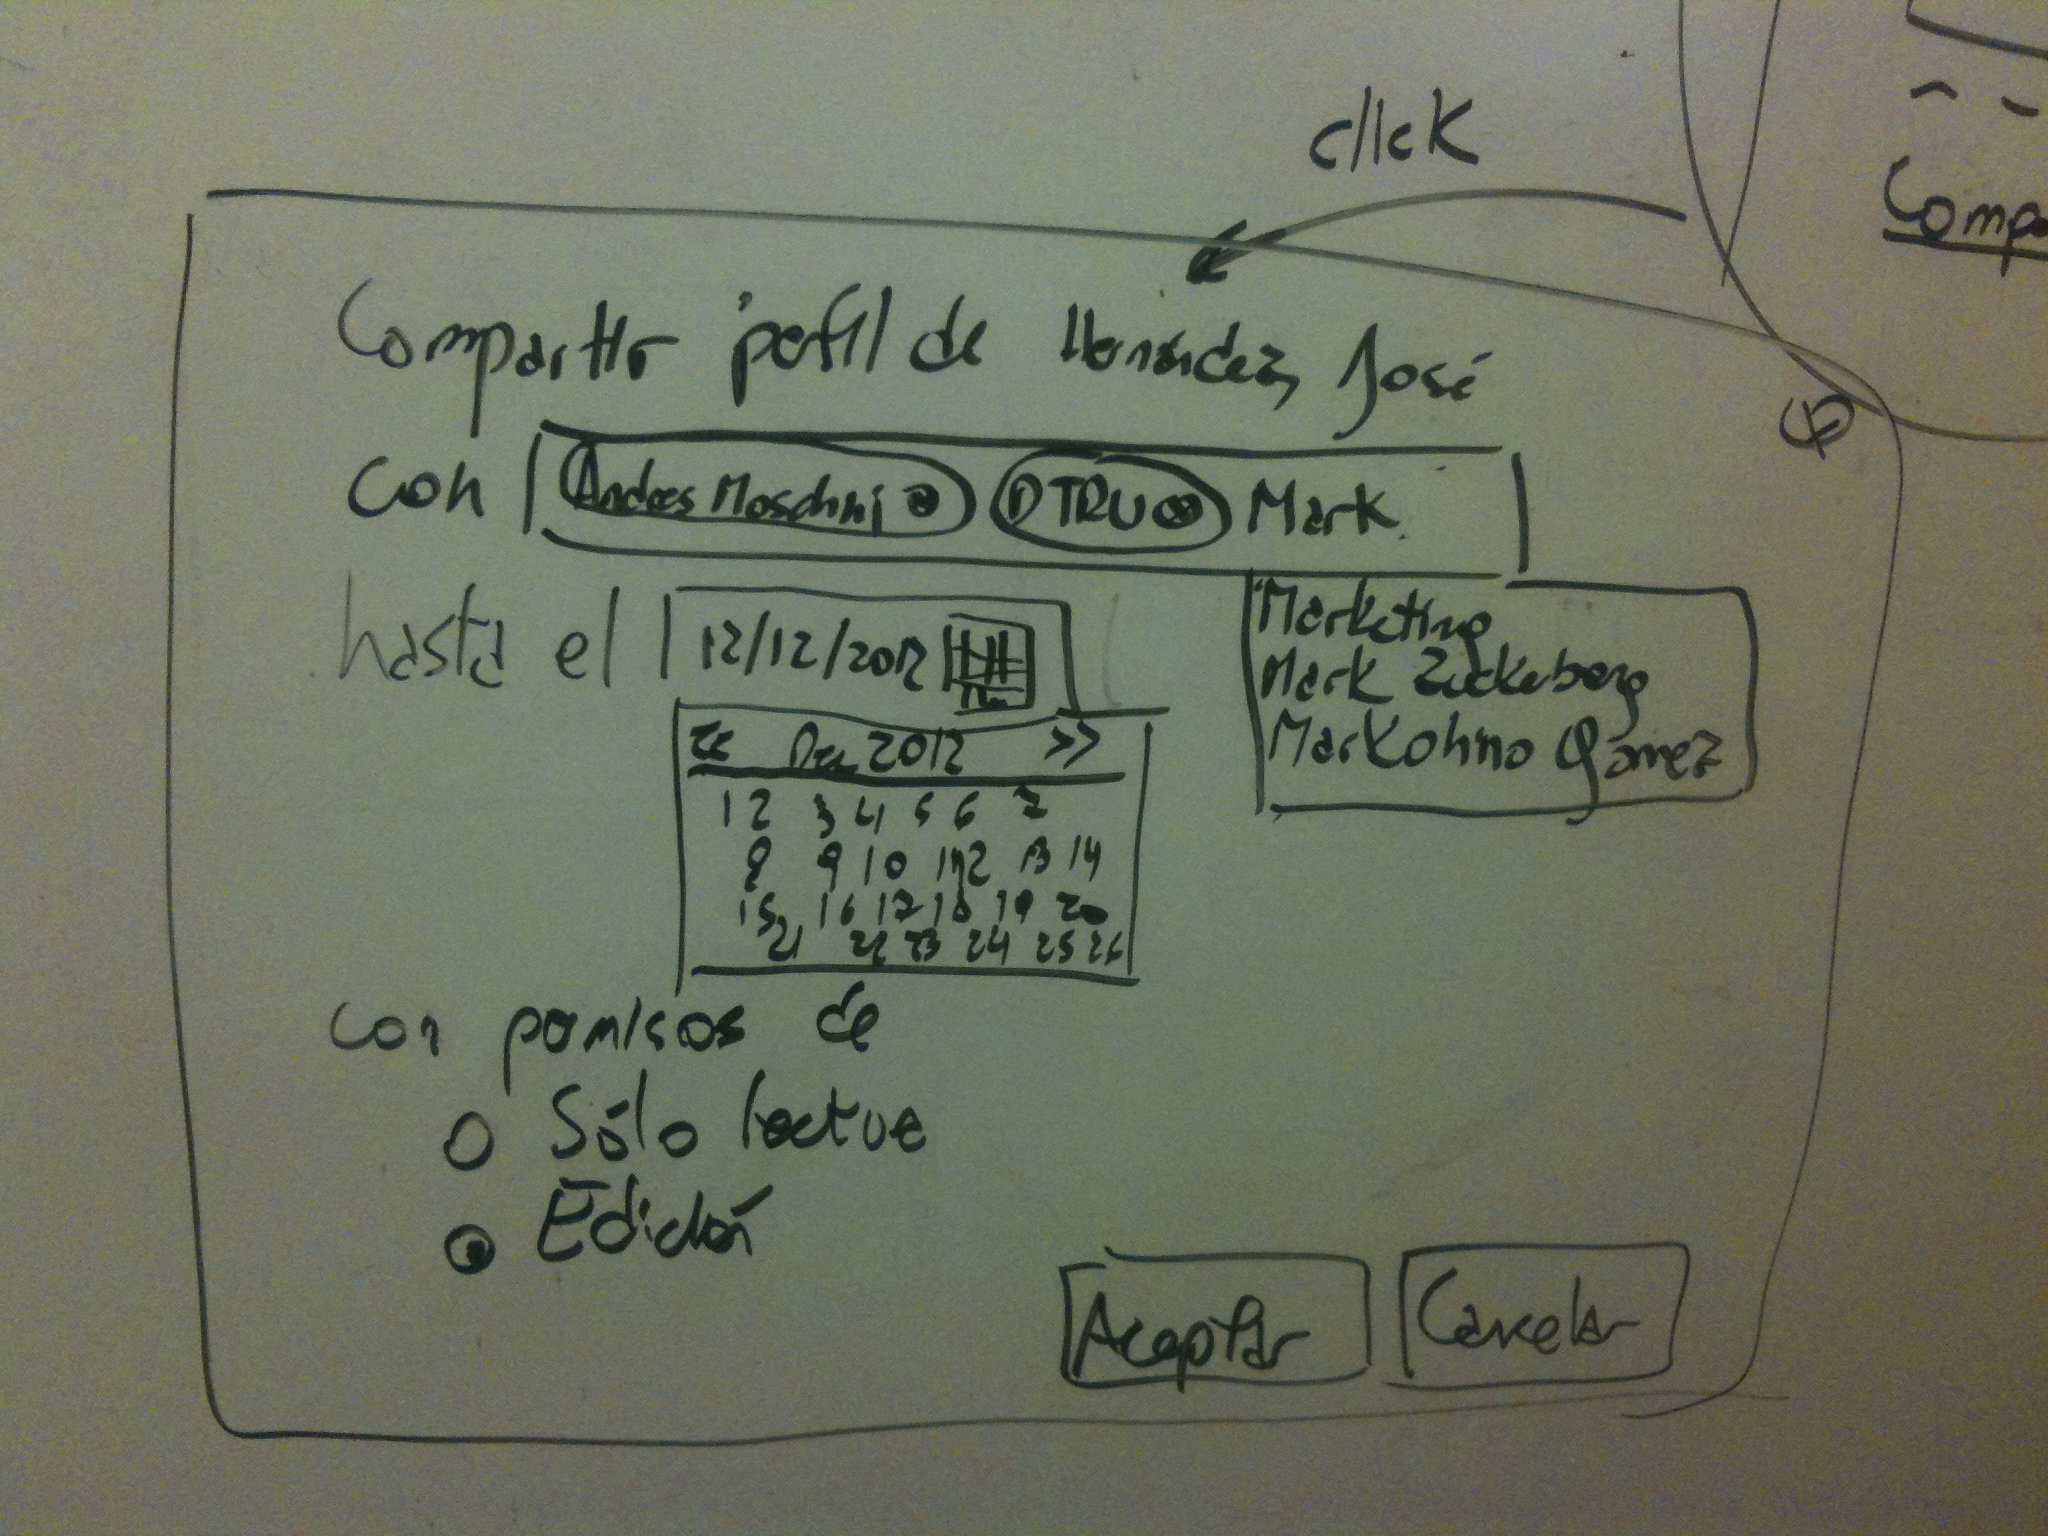 click
Compa
Compartir perfil de Hernández, José
con Andres Moschini DTRU Mark
Marketing
Mark Zuckeberg
Markohno Gomez
hasta el 12/12/2012
<< Dec 2012 >>
1 2 3 4 5 6 7
8 9 10 11 12 13 14
15 16 17 18 19 20
21 22 23 24 25 26
con permisos de
Sólo lectura
Edición
Aceptar Cancelar